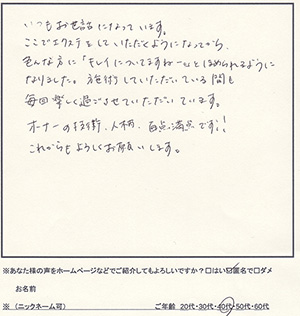 いつもお世話になっています。
ここでエクステをしていただくようになってから、
色んな方に「キレイについてますねー」とほめられるように
なりました。施術していただいている間も
毎回楽しく過ごさせていただいています。
オーナーの技術、人柄、百点満点です!!
これからもよろしくお願いします。
※あなた様の声をホームページなどでご紹介してもよろしいですか?□はい☑匿名で□ダメ
お名前
※（ニックネーム可） ご年齢 20代・30代・40代・50代・60代